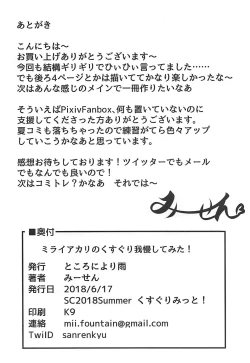 あとがき
こんにちは～
お買い上げありがとうございます～
今回も結構ギリギリでひぃひぃ言ってました……
でも後ろ4ページとかは描いててかなり楽しかったな～
次はあんな感じのメインで一冊作りたいなあ
そういえばPixivFanbox、何も置いていないのに
支援してくださった方ありがとうございます。
夏コミも落ちちゃったので練習がてら色々アップ
していこうかなあと思っています。
感想お待ちしております！ツイッターでもメール
でもなんでも良いので！
次はコミトレ？かなあ　それでは～
みーせん
■奥付
ミライアカリのくすぐり我慢してみた！
発行　ところにより雨
著者　みーせん
発行日　2018/6/17
SC2018Summer くすぐりみっと！
印刷　K9
連絡　mii.fountain@gmail.com
TwiID　sanrenkyu